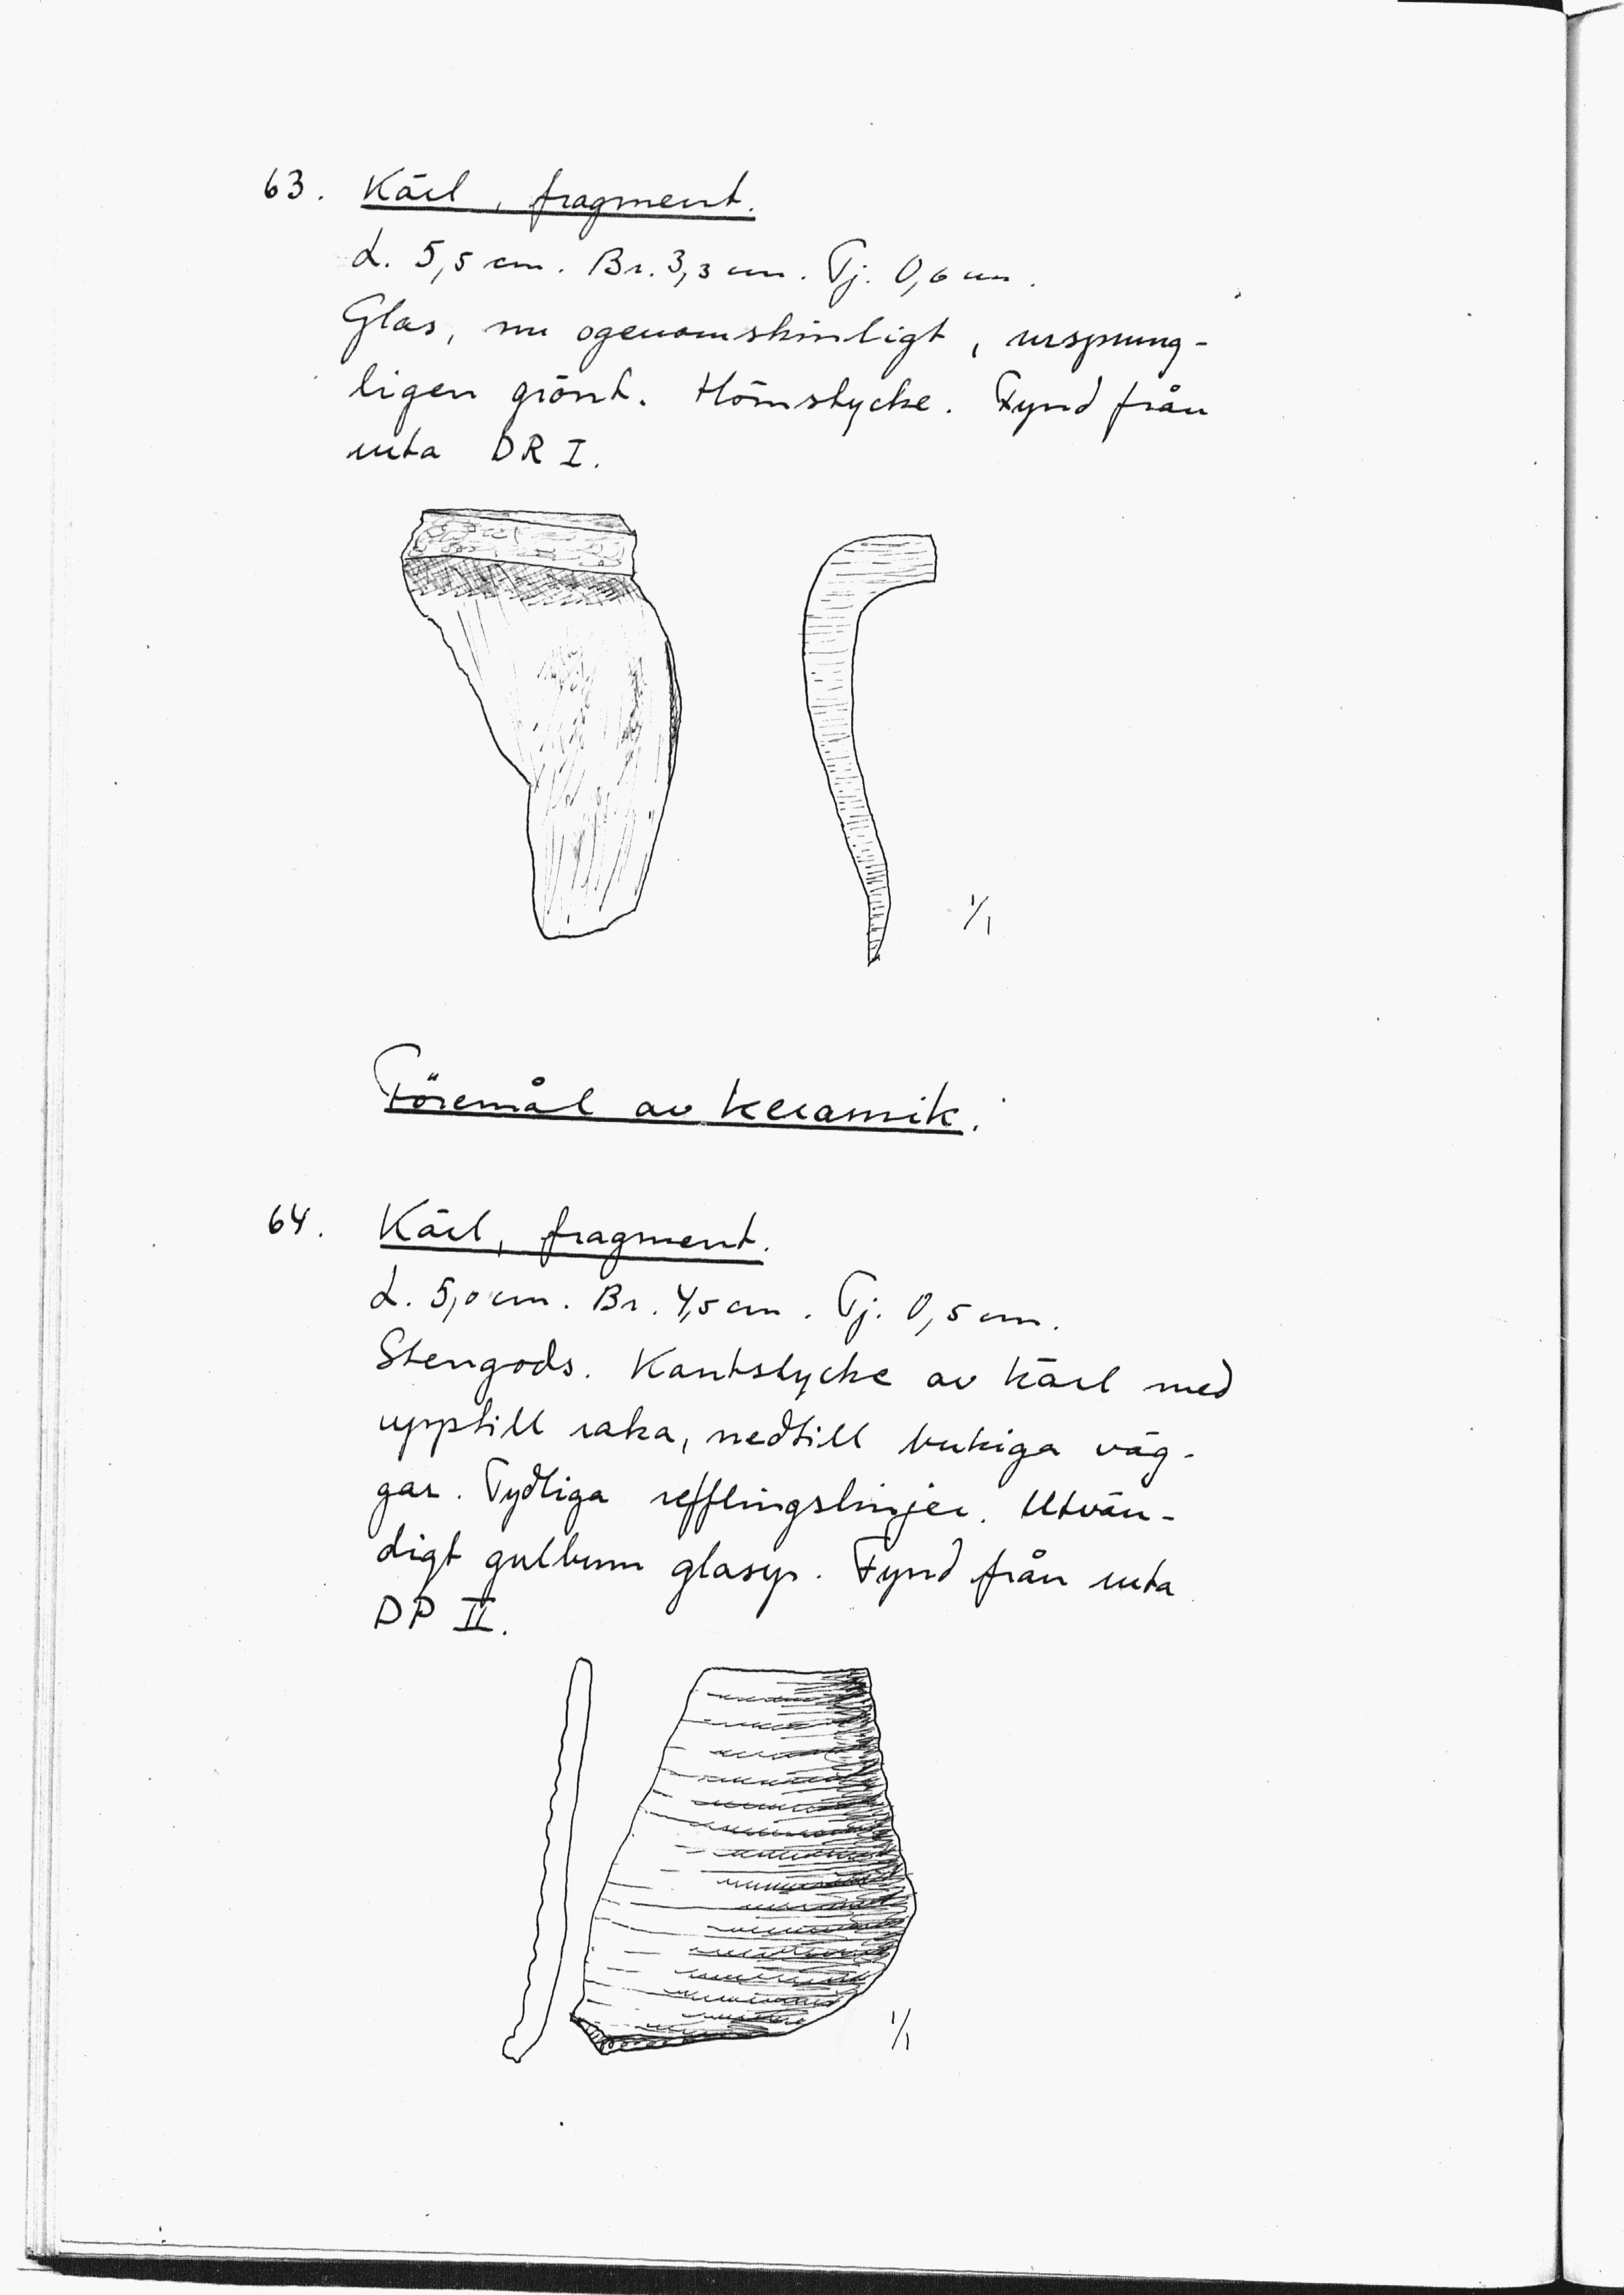 63. Kärl, fragment.
L. 5,5 cm. Br. 3,3 cm. Tj. 0,6 cm.
Glas, nu ogenomskinligt, ursprung-
ligen grönt. Hörnstycke. Fynd från
ruta DR I.
1/1
Föremål av keramik.
64. Kärl, fragment.
L. 5,0 cm. Br. 4,5 cm. Tj. 0,5 cm.
Stengods. Kantstycke av kärl med
upptill raka, nedtill bukiga väg-
gar. Tydliga refflingslinjer. Utvän-
digt gulbrun glasyr. Fynd från ruta
DP II.
1/1